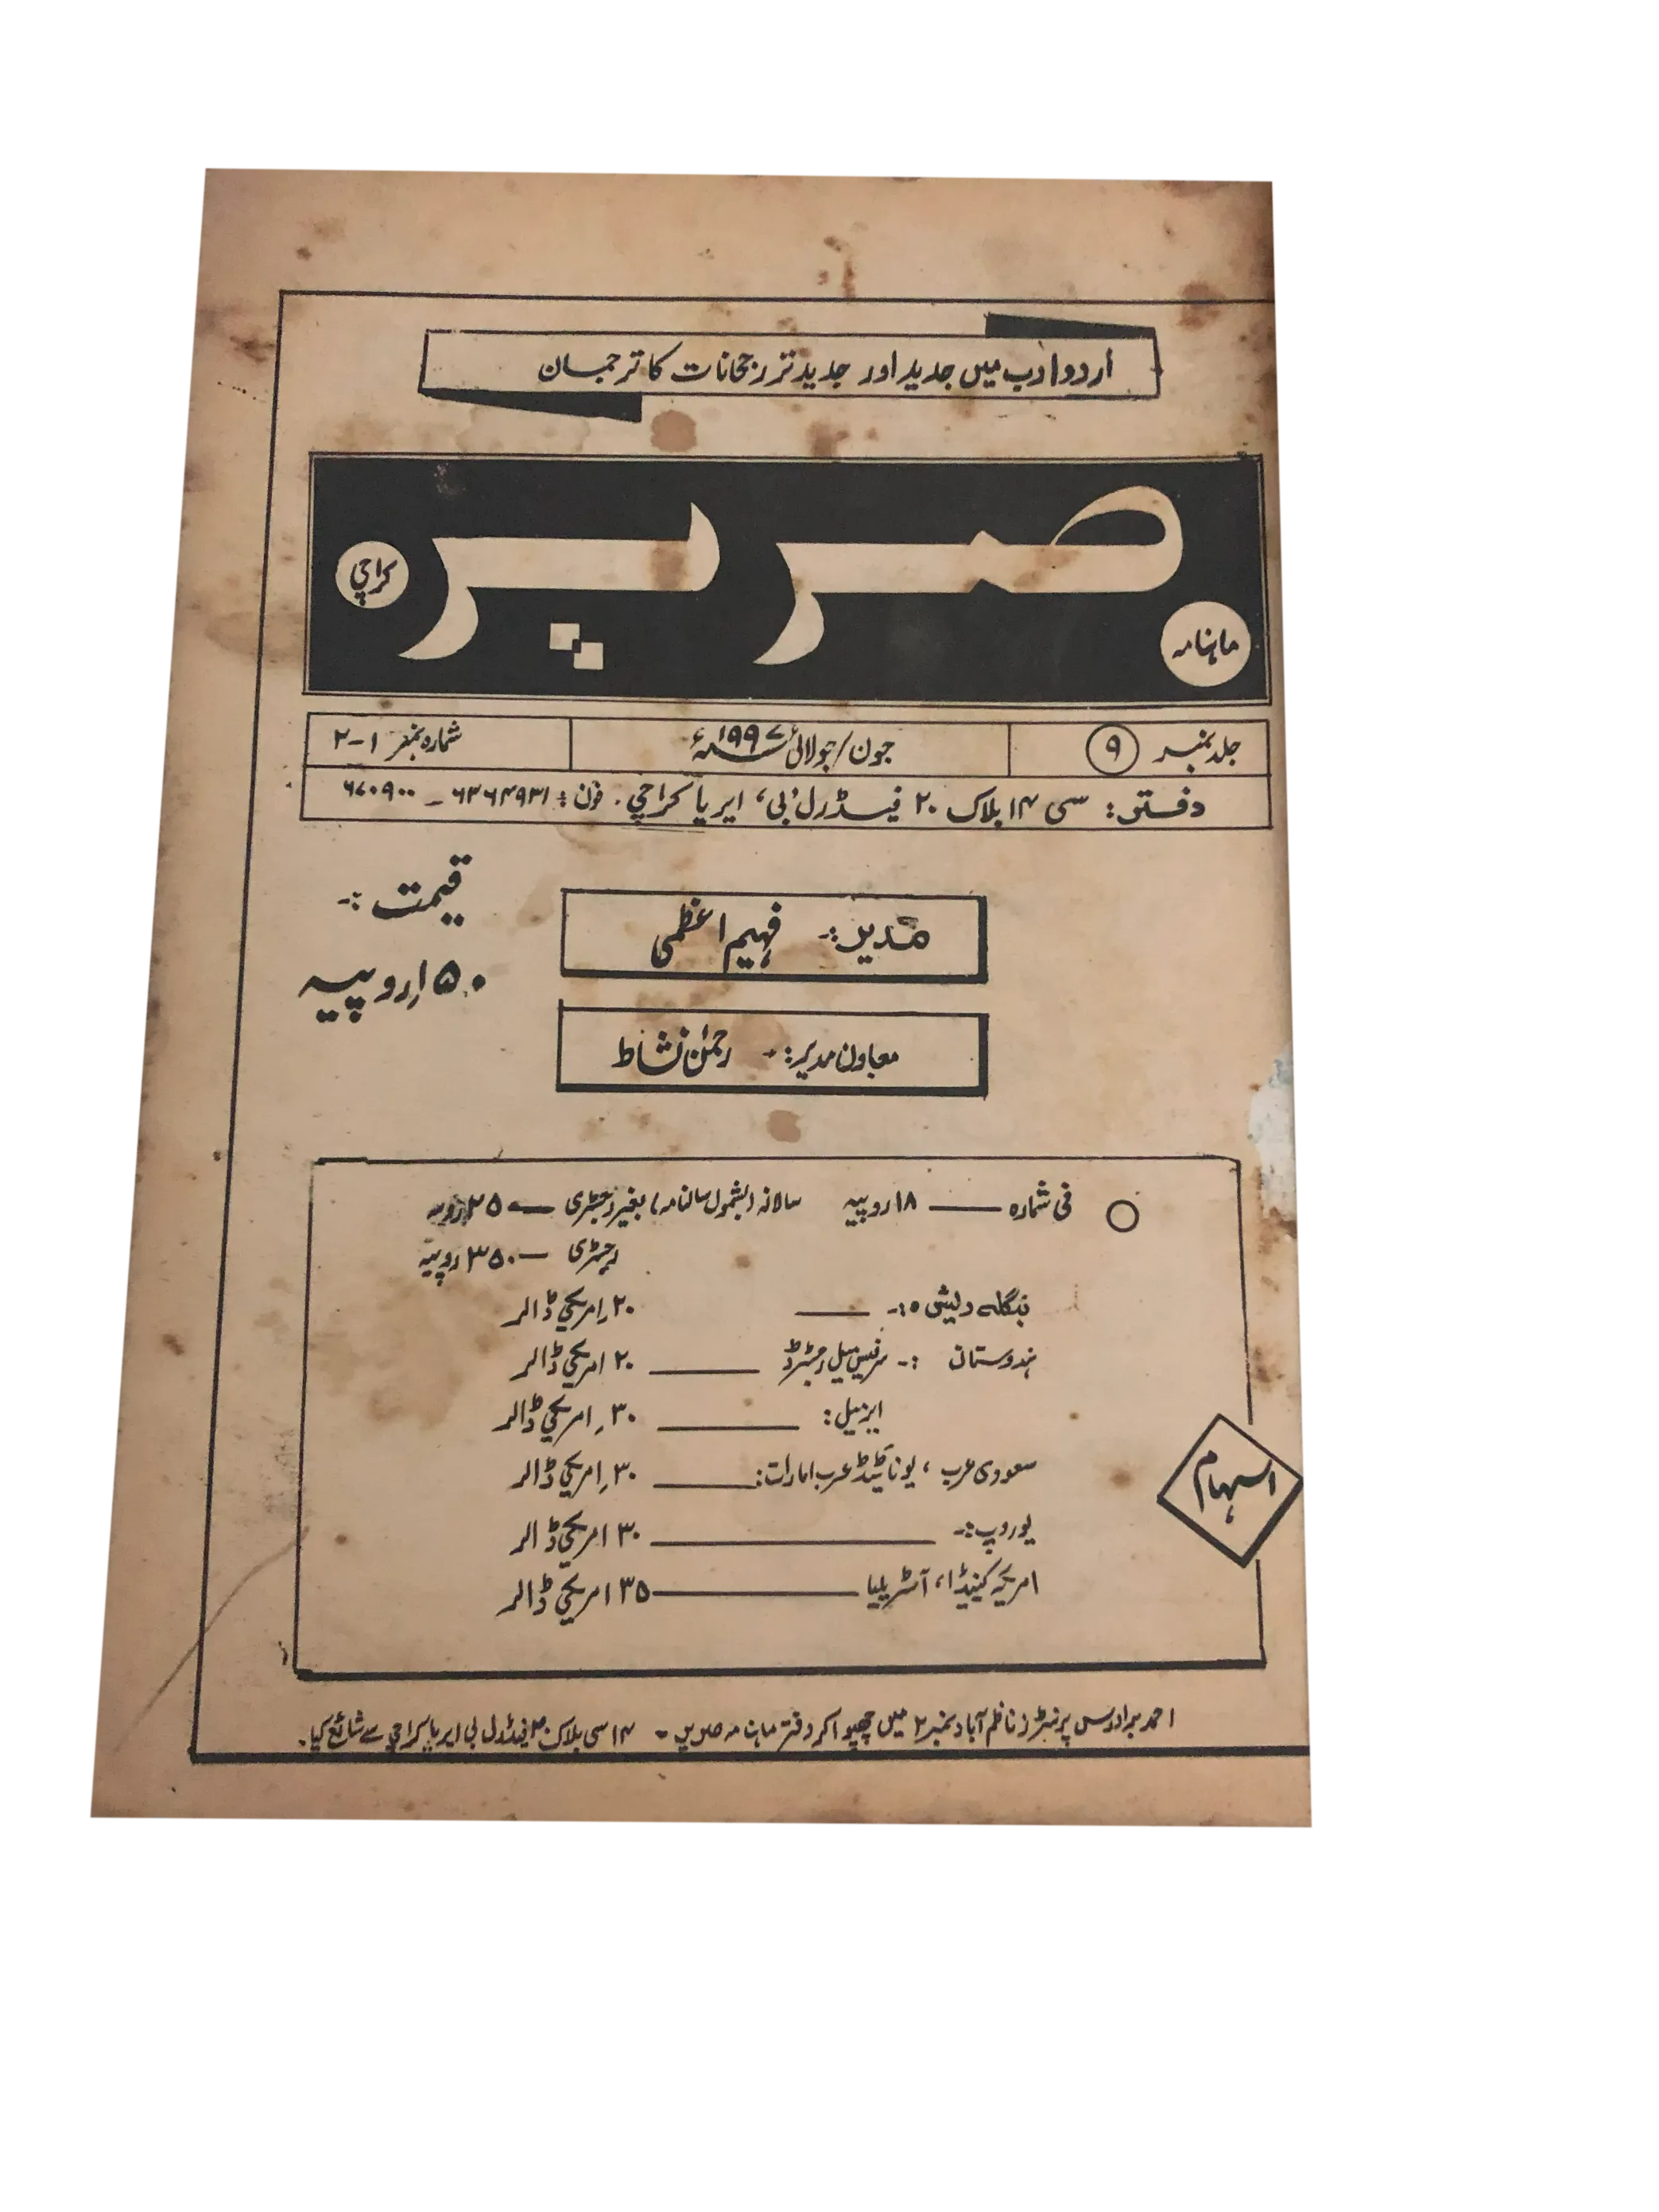 اردو ادب میں جدید اور جدید تر رجحانات کا ترجمان
ماہنامہ
صریر
کراچی
جلد نمبر ۹
جون/جولائی ۱۹۹۷ء
شمارہ نمبر ۱-۲
دفتر: سی ۱۴ بلاک ۲۰ فیڈرل 'بی' ایریا کراچی. فون: ۶۳۶۴۹۳۱ - ۶۷۰۹۰۰
قیمت :-
۱۵۰ روپیہ
مدیر :- فہیم اعظمی
معاون مدیر :- رحمٰن نشاط
فی شمارہ — ۱۸ روپیہ سالانہ (بشمول سالنامہ) بغیر رجسٹری — ۲۵۰ روپیہ
رجسٹری — ۳۵۰ روپیہ
بنگلہ دیش :- — ۲۰ امریکی ڈالر
ہندوستان :- سرفیس میل رجسٹرڈ — ۲۰ امریکی ڈالر
ایرمیل : — ۳۰ امریکی ڈالر
سعودی عرب ، یونائیٹڈ عرب امارات : — ۳۰ امریکی ڈالر
یوروپ :- — ۳۰ امریکی ڈالر
امریکہ کینیڈا، آسٹریلیا — ۳۵ امریکی ڈالر
اسہام
احمد برادرس پرنٹرز ناظم آباد نمبر ۲ میں چھپوا کر دفتر ماہنامہ صریر - ۱۴ سی بلاک ۲۰ فیڈرل بی ایریا کراچی سے شائع کیا.